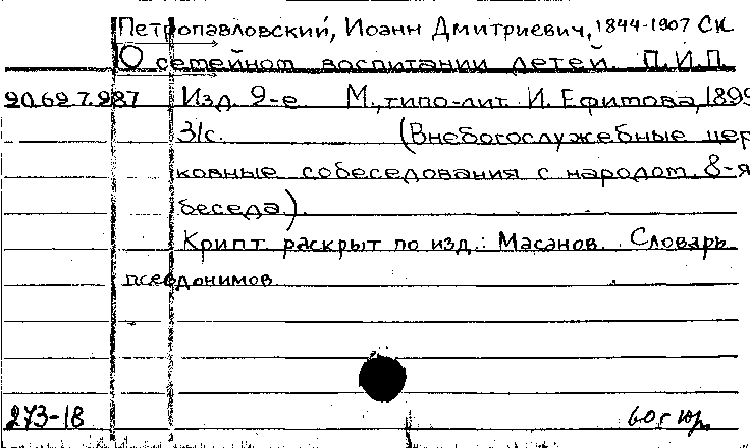 Петропавловский, Иоанн Дмитриевич, 1844-1907 СК
О семейном воспитании детей. П.И.П.
90.69.7.987 Изд. 9-е М., типо-лит. И. Ефимова, 1899
31с. (Внебогослужебные цер
ковные собеседования с народом. 8-я
беседа).
Крипт. раскрыт по изд.: Масанов. Словарь
псевдонимов
273-18 60г юр.